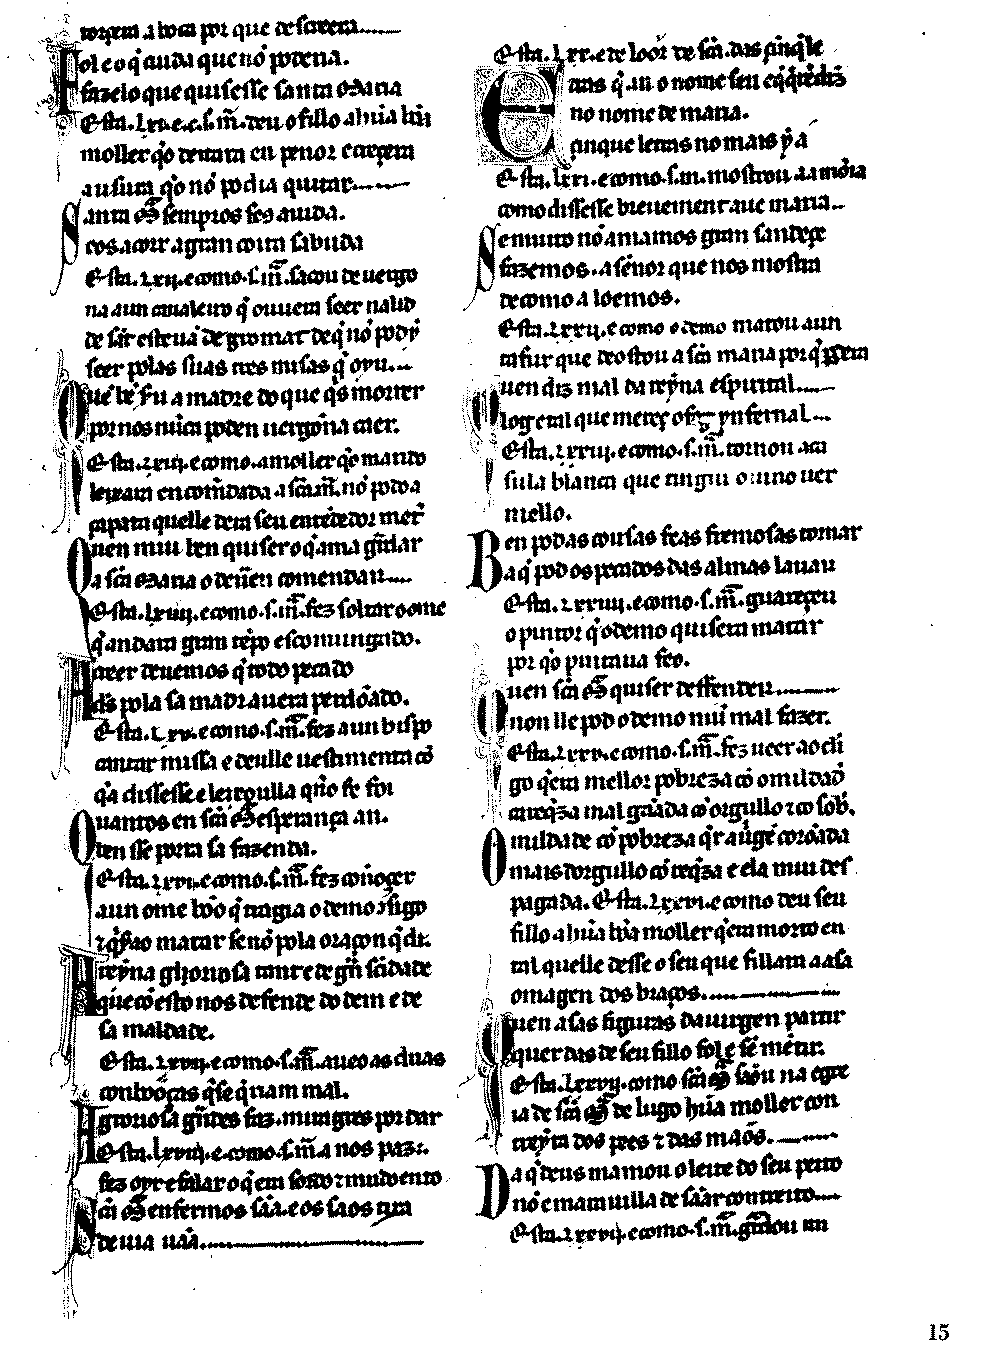 torçera a boca por que descreera......
Fol e o q̃ cuida que nõ poderia.
fazelo que quisesse santa Maria
Esta .lxii. e .c. s. m̃. deu o fillo a hũa bõa
moller q̃o deitara en penor e creçera
a usura q̃o nõ podia quitar......
Santa M̃ sempr os seus aiuda.
e os acorr a gran coita sabuda
Esta .lxiii. e como .s. m̃. sacou de uergo
na a un caualeiro q̃ ouuera seer na lide
de sãt esteuã de gormaz de q̃ nõ pod y
seer polas suas tres missas q̃ oyu...
Quẽ bẽ seru a madre do que q̃s morrer
por nos nũca poden uergõna caer.
Esta .lxiiii. e como .a moller q̃o marido
leixara en comẽdada a sc̃a m̃. nõ podo a
çapata quelle dera seu entẽdedor meter
Quen mui ben quiser o q̃ ama gũdar
a sc̃a Maria o deuen comendar....
Esta .lxv. e como .s. m̃. fez soltar o ome
q̃ andara gran tẽpo escomungado.
A creer deuemos q̃ todo pecado
ds̃ pola sa madr auera perdõado.
Esta .lxvi. e como .s. m̃. fez a un bispo
cantar missa e deulle uestimenta cõ
q̃a dissesse e leixoulla q̃no se foi
Quantos en sc̃a M̃ esperança an.
ben sse porra sa fazenda.
Esta .lxvii. e como .s. m̃. fez coñoçer
a un ome bõo q̃ tragia o demo consigo
q̃o matar senõ pola oraçon q̃ diz.
A reỹna gloriosa tant e de gñ sc̃idade
que cõ esto nos defende do dem e de
sa maldade.
Esta .lxviii. e como .s. m̃. aueo as duas
conbooças q̃ se q̃rian mal.
A groriosa gñdes faz. miragres por dar
Esta .lxviiii. e como .s. m̃. a nos paz.
fez oyr e falar o q̃ era sordo e mudo en to
Sc̃a M̃ os enfermos sãa. e os sãos tira
de uia uãa......
Esta .lxx. e de loor de sc̃a. das çinq̃ le
Eras q̃ an o nome seu e q̃ q̃re diz
no nome de maria.
çinque letras no mais y a
Esta .lxxi. e como .s. m. mostrou aa monia
como dissesse breuement aue maria..
Se muito nõ amamos gran sandeçe
fazemos. a sẽnor que nos mostra
de como a loemos.
Esta .lxxii. e como o demo matou a un
tafur que deostou a sc̃a maria por q̃ perdera
Quen diz mal da reỹna espirital....
log e tal que mereç o fog ynfernal...
Esta .lxxiii. e como .s. m̃. tornou a ca
sula blanca que tingiu o uinno uer
mello.
Ben pod as cousas feas fremosas tornar
a q̃ pod os pecados das almas lauar
Esta .lxxiiii. e como .s. m̃. guareçeu
o pintor q̃ o demo quisera matar
por q̃o pintaua feo.
Quen sc̃a M̃ quiser deffender......
non lle pod o demo nũl mal fazer.
Esta .lxxv. e como .s. m̃. fez ueer ao cli
go q̃ era mellor pobreza cõ omildad
ca req̃za mal gãada cõ orgullo e cõ sob̃.
Omildade cõ pobreza q̃r a ũgẽ corõada
mais dorgullo cõ req̃za e ela mui des
pagada. Esta .lxxvi. e como deu seu
fillo a hũa bõa moller q̃ era morto en
tal quelle desse o seu que fillara aa sa
omagen dos braços......
Quen as sas figuras da uirgen partir
quer das de seu fillo fol e sẽ mẽtir.
Esta .lxxvii. como sc̃a M̃ sãou na egre
ia de sc̃a M̃ de lugo hũa moller con
treỹta dos pees e das mãos.......
Da q̃ deus mamou o leite do seu peito
nõ e marauilla de sãar contreito....
Esta .lxxviii. e como .s. m̃. guardou un
15